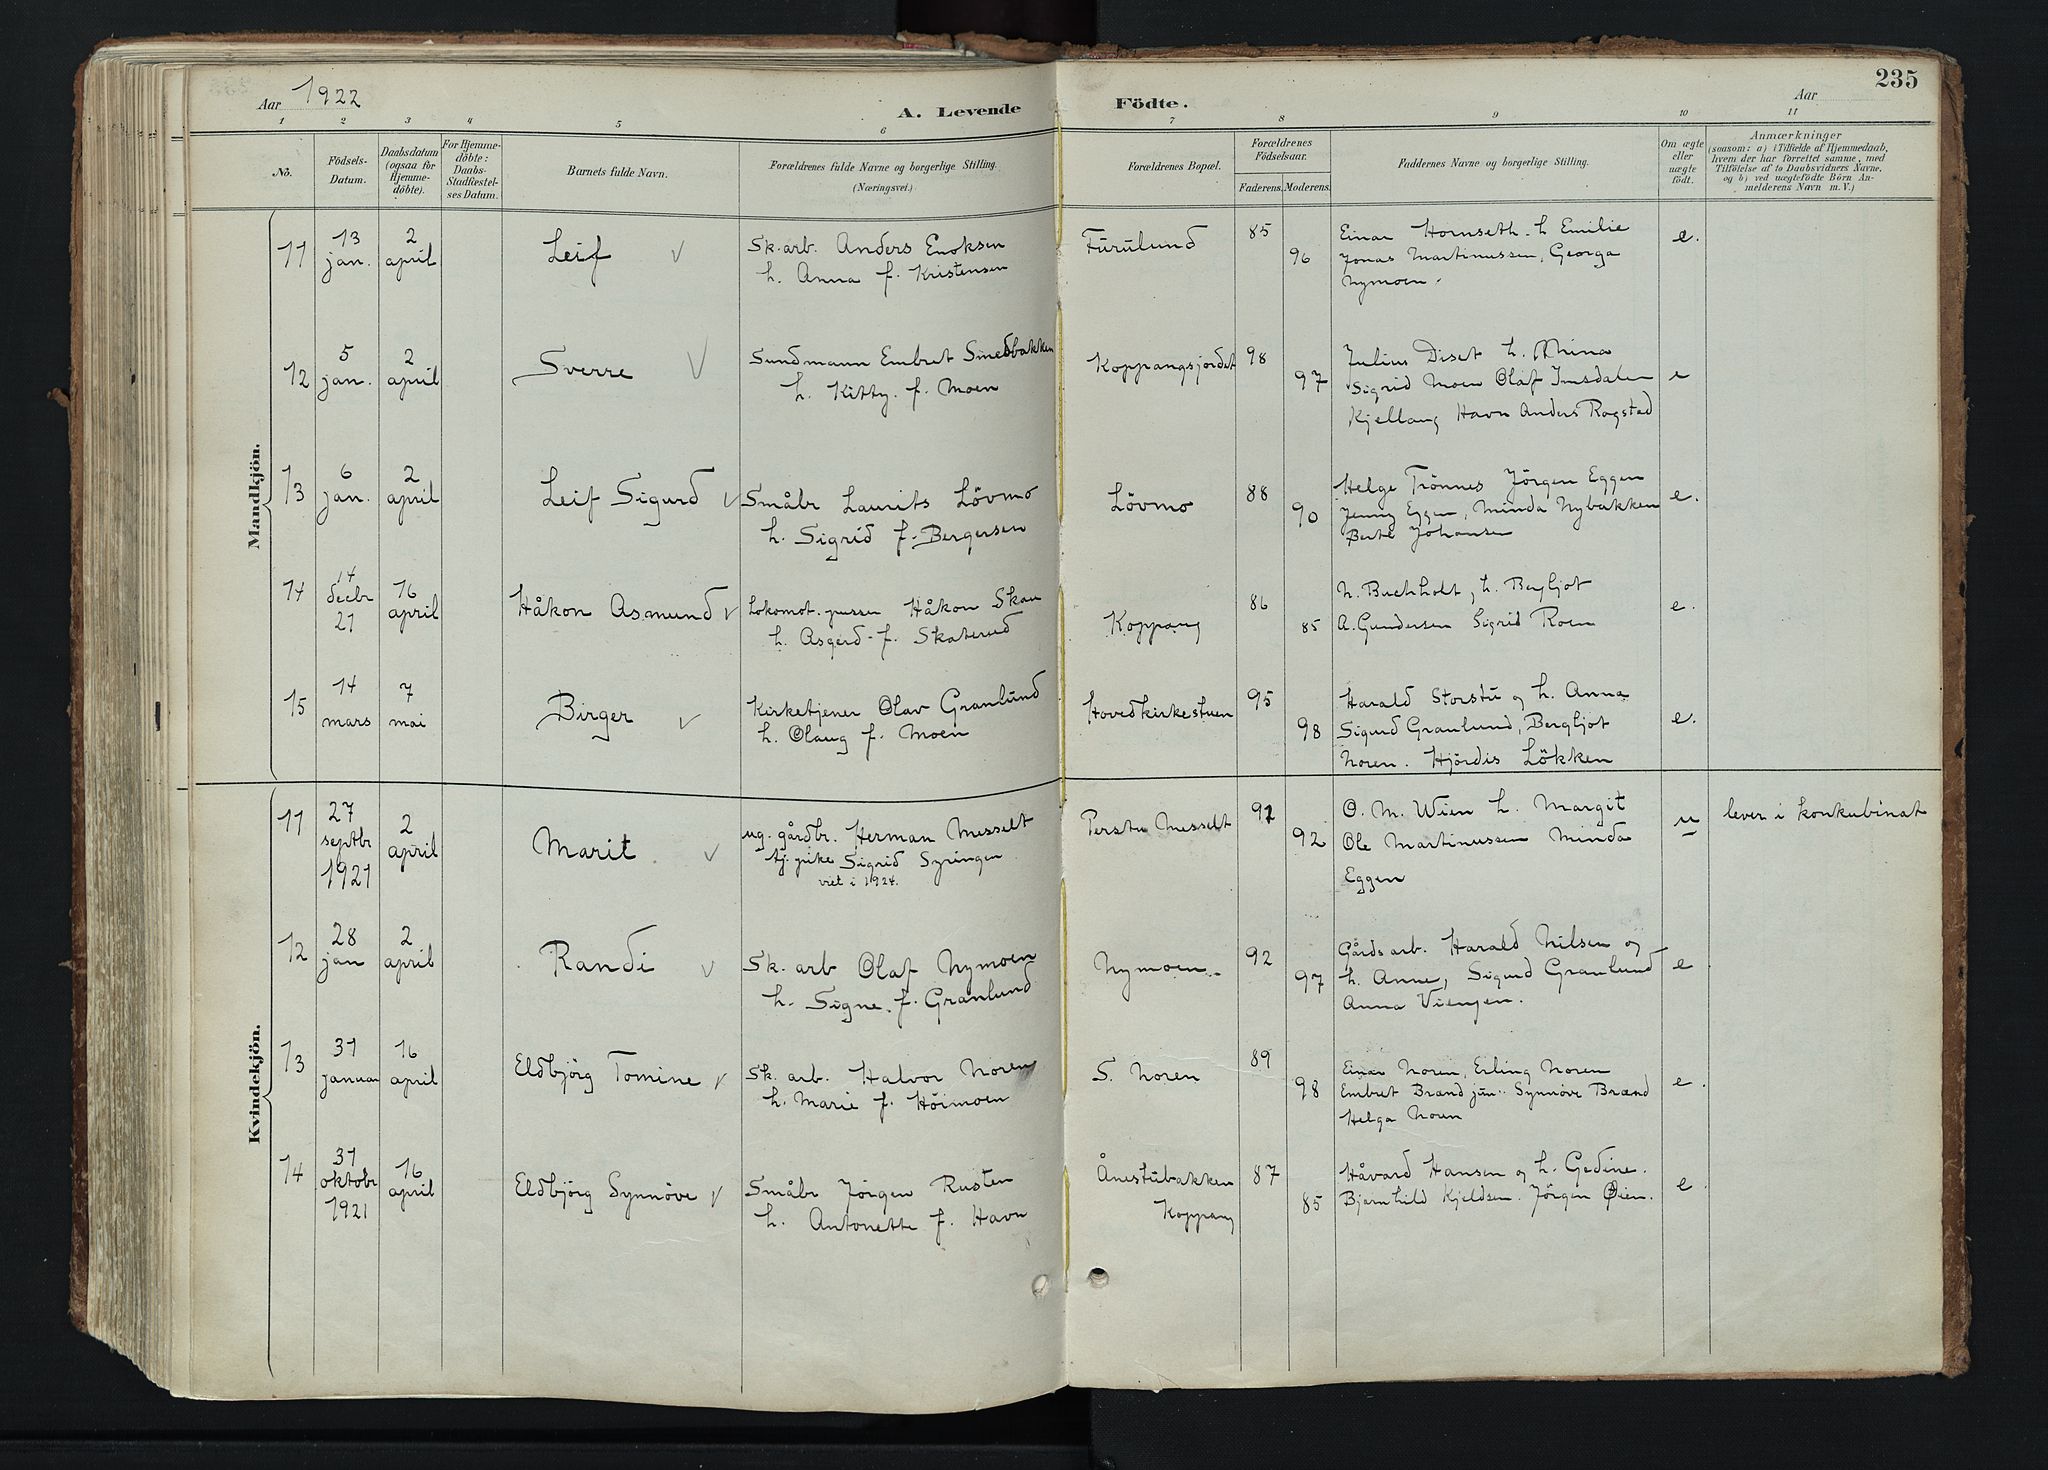 Aar 1922
A. Levende Födte.
Aar
235
1 2 3 4 5 6 7 8 9 10 11
No.
Födsels-
Datum.
Daabsdatum
(ogsaa for
Hjemme-
döbte).
For Hjemme-
döbte:
Daabs-
Stadfæstel-
ses Datum.
Barnets fulde Navn.
Forældrenes fulde Navne og borgerlige Stilling.
(Næringsvei.)
Forældrenes Bopæl.
Forældrenes
Födselsaar.
Faderens. Moderens.
Faddernes Navne og borgerlige Stilling.
Om ægte
eller
uægte
födt.
Anmærkninger
(saasom: a) i Tilfælde af Hjemmedaab,
hvem der har forrettet samme, med
Tilföielse af to Daabsvidners Navne,
og b) ved uægtefödte Börn An-
melderens Navn m. V.)
Mandkjön.
11
13
jan.
2
april
Leif
Sk. arb. Anders Enoksen
h. Anna f. Kristensen
Furulund
85
96
Einar Hornseth h. Emilie
Jonas Martinussen, Georga
Nymoen.
e.
12
5
jan.
2
april
Sverre
Sundmann Embret Smedbakken
h. Kitty. f. Moen
Koppangsjordet
98
97
Julius Diset h. Mina
Sigrid Moen Olaf Imsdalen
Kjellaug Havn Anders Rogsted
e
13
6
jan.
2
april
Leif Sigurd
Småbr Laurits Lövmo
h. Sigrid f. Bergersen
Lövmo
88
90
Helge Trönnes Jörgen Eggen
Jenny Eggen, Minda Nybakken
Berte Johansen
e.
14
14
decbr
21
16
april
Håkon Asmund
Lokomot. pusser Håkon Skau
h. Asgerd f. Skaterud
Koppang
86
85
N. Buchholt, h. Bergljot
A. Gundersen Sigrid Roen
e.
15
14
mars
7
mai
Birger
Kirketjener Olav Granlund
h. Olaug f. Moen
Hovedkirkestuen
95
98
Harald Storstu og h. Anna
Sigurd Granlund, Bergljot
Noren. Hjördis Lökken
e.
Kvindekjön.
11
27
septbr
1921
2
april
Marit
ug. gårdbr. Herman Messelt
tj. pike Sigrid Syringen
viet i 1924.
Perstu Messelt
92
92
O. M. Wien h. Margit
Ole Martinussen Minda
Eggen
u
lever i konkubinat
12
28
jan
2
april
Randi
Sk. arb Olaf Nymoen
h. Signe. f. Granlund
Nymoen
92
97
Gårds arb. Harald Nilsen og
h. Anne, Sigurd Granlund
Anna Viengen.
e
13
31
januar
16
april
Eldbjörg Tomine
Sk. arb. Halvor Noren
h. Marie f. Höimoen
S. Noren
89
98
Einar Noren, Erling Noren
Embret Brænd jun. Synnöve Brænd
Helga Noren
e.
14
31
oktobr
1921
16
april
Eldbjörg Synnöve
Småbr Jörgen Rusten
h. Antonette f. Havn
Ånestubakken
Koppang
87
85
Håvard Hansen og h. Gedine.
Bjarnhild Kjeldsen. Jörgen Øien.
e.